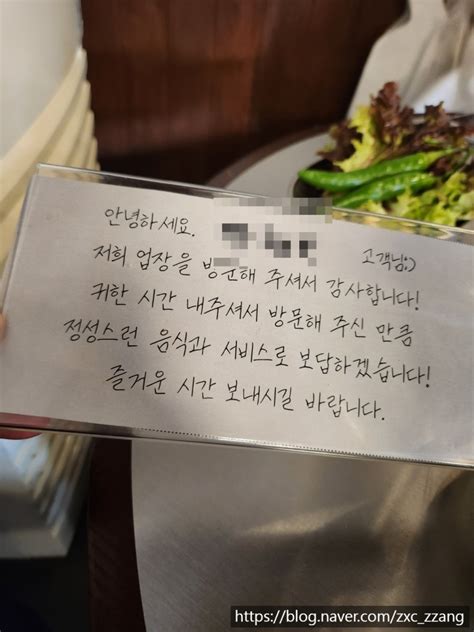 안녕하세요. 고객님:)
저희 업장을 방문해 주셔서 감사합니다!
귀한 시간 내주셔서 방문해 주신 만큼
정성스런 음식과 서비스로 보답하겠습니다!
즐거운 시간 보내시길 바랍니다.
https://blog.naver.com/zxc_zzang